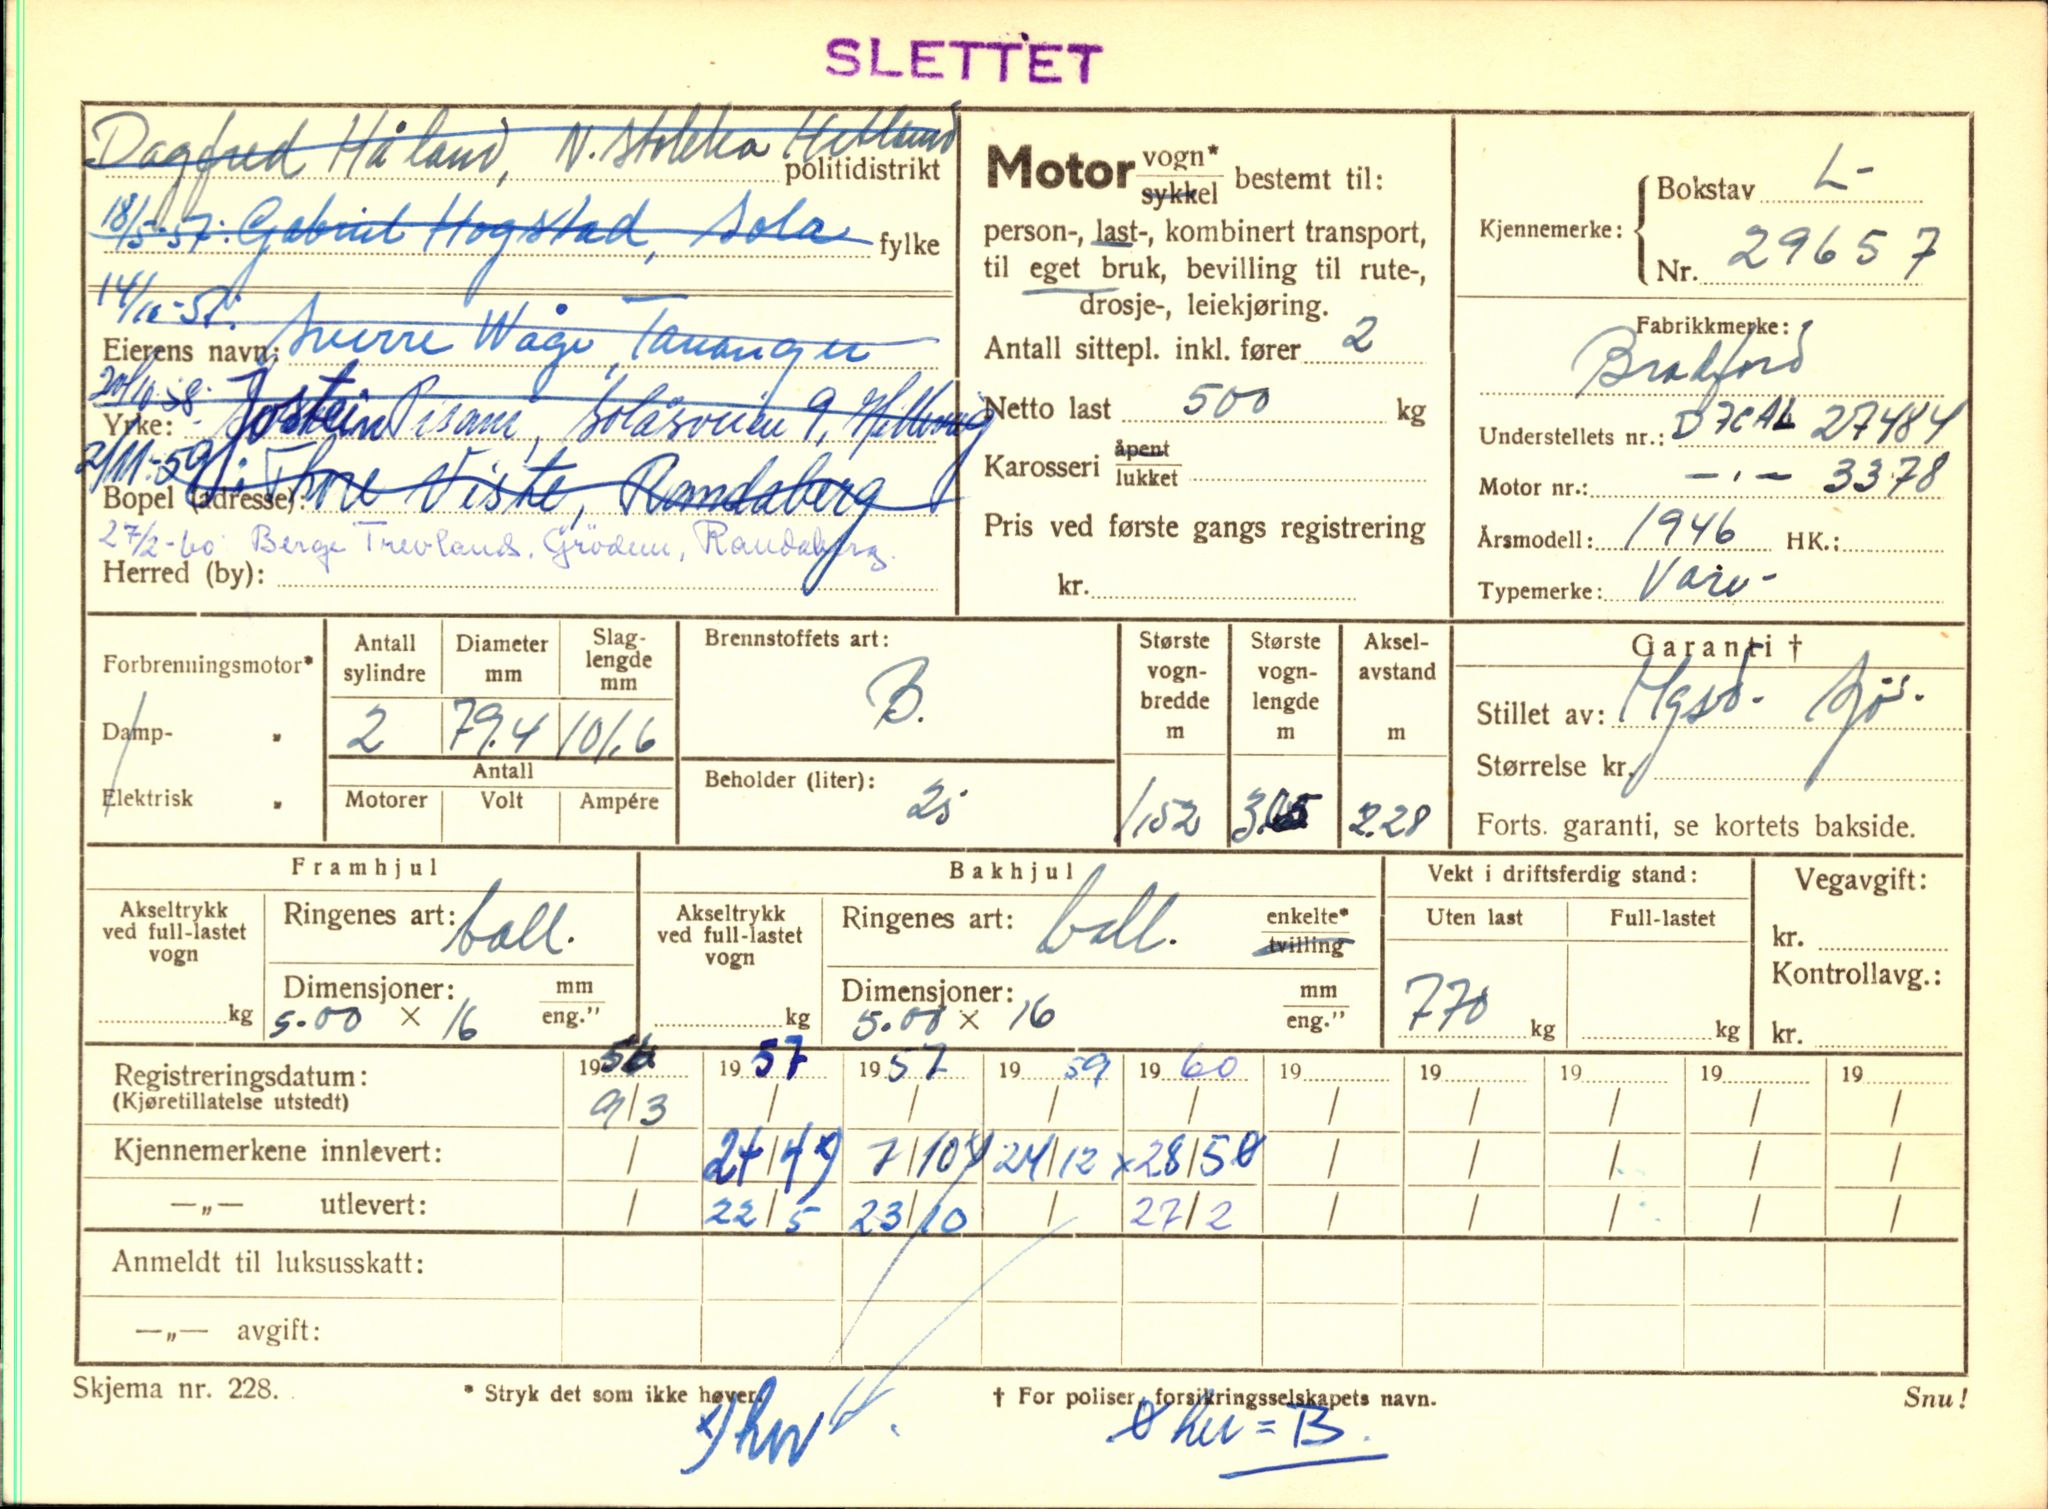 SLETTET
Dagfred Håland, N. Stokka Hetland
politidistrikt
18/5-57. Gabriel Hogstad, Sola
fylke
14/10-57.
Eierens navn: Sverre Wåge, Tananger
20/10-58 Jostein
Yrke: Solåsveien 9, Hillevåg
2/11-59 Thore Viste, Randaberg
Bopel (adresse):
27/2-60 Berge Trevland, Grödem, Randaberg.
Herred (by):
Motor vogn* sykkel bestemt til:
person-, last-, kombinert transport,
til eget bruk, bevilling til rute-,
drosje-, leiekjøring.
Antall sittepl. inkl. fører 2
Netto last 500 kg
Karosseri åpent lukket
Pris ved første gangs registrering
kr.
Kjennemerke: Bokstav L-
Nr. 29657
Fabrikkmerke:
Bradford
Understellets nr.: D7CAL 27484
Motor nr.: -"- 3378
Årsmodell: 1946 HK.:
Typemerke: Vare-
Forbrenningsmotor*
Damp- "
Elektrisk "
Antall sylindre 2
Diameter mm 79.4
Slaglengde mm 101.6
Antall
Motorer Volt Ampére
Brennstoffets art:
B.
Beholder (liter):
25
Største vogn-bredde m 1,52
Største vogn-lengde m
Aksel-avstand m 2.28
Garanti †
Stillet av:
Størrelse kr.
Forts. garanti, se kortets bakside.
Framhjul
Akseltrykk ved full-lastet vogn
kg
Ringenes art: ball.
Dimensjoner: mm
5.00 × 16 eng."
Bakhjul
Akseltrykk ved full-lastet vogn
kg
Ringenes art: ball. enkelte* tvilling
Dimensjoner: mm
5.00 × 16 eng."
Vekt i driftsferdig stand:
Uten last Full-lastet
770 kg kg
Vegavgift:
kr.
Kontrollavg.:
kr.
Registreringsdatum: 1956 1957 1957 1959 1960 19 19 19 19 19
(Kjøretillatelse utstedt) 9/3 / / / / / / / / /
Kjennemerkene innlevert: / 24/4 7/10 21/12 x 28/5 / / / / /
—„— utlevert: / 22/5 23/10 / 27/2 / / / / /
Anmeldt til luksusskatt:
—„— avgift:
Skjema nr. 228.
* Stryk det som ikke høver.
† For poliser, forsikringsselskapets navn.
Snu!
x) hvr
hvr = B.